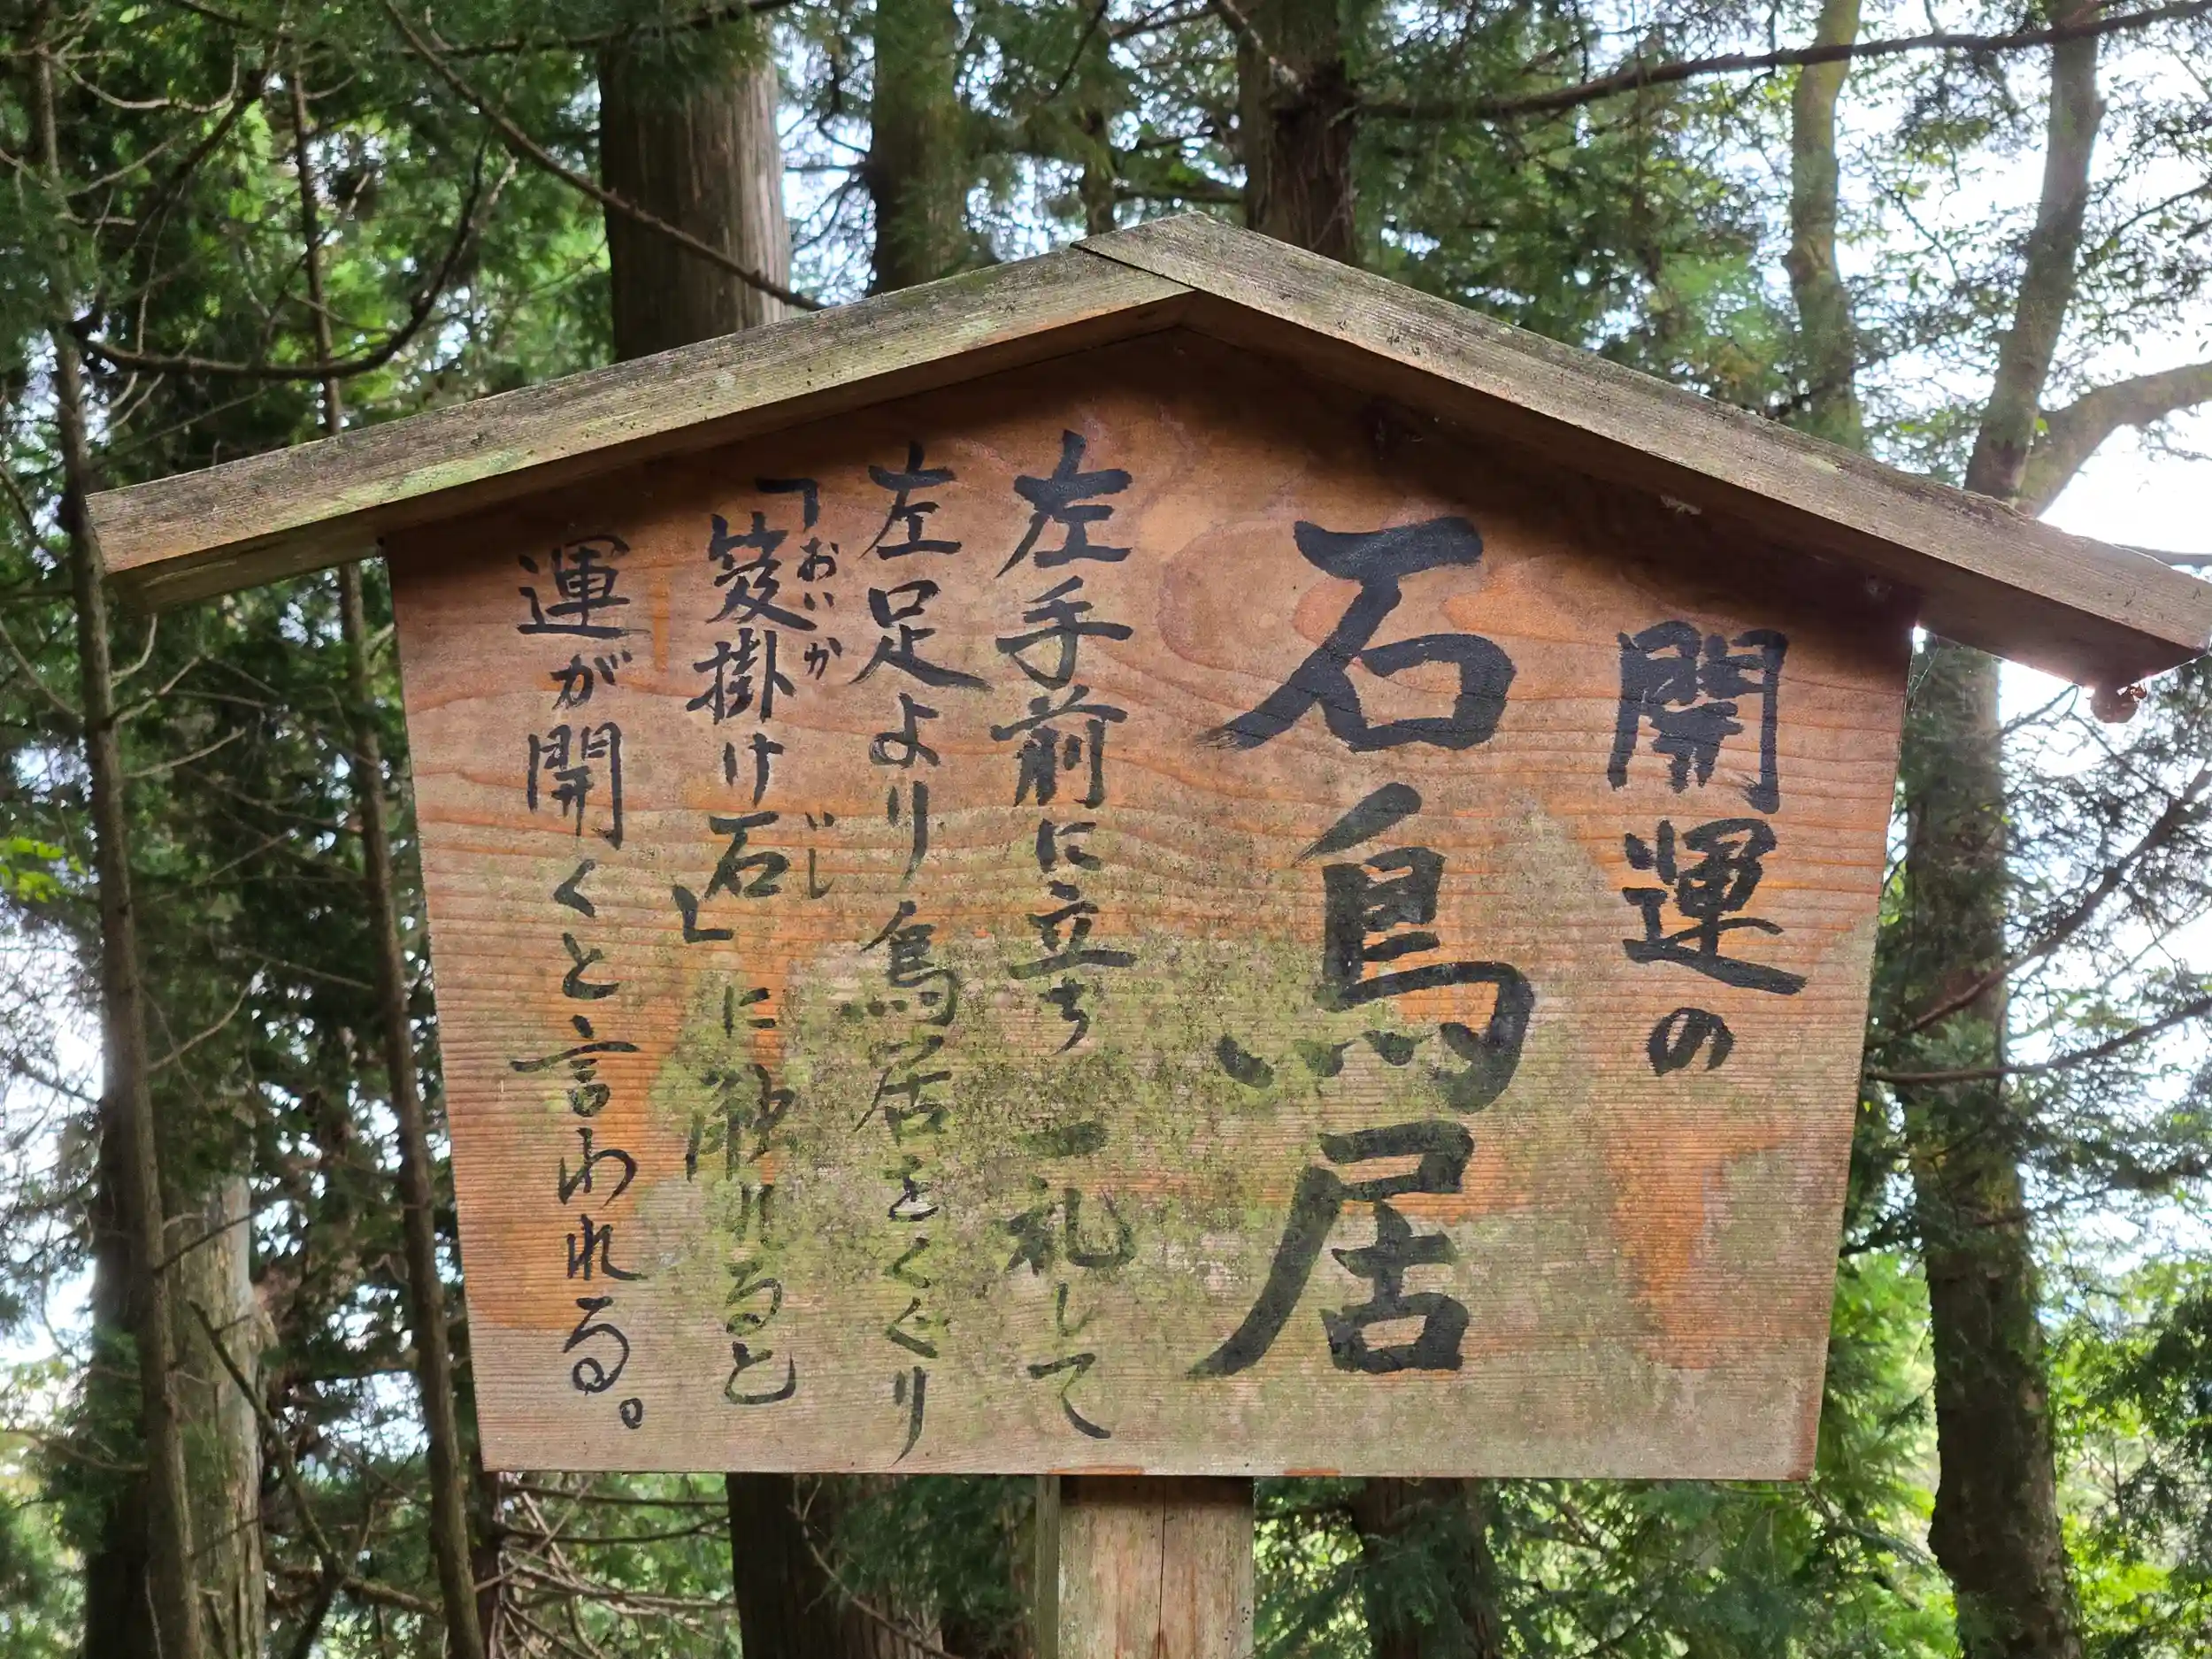 開運の
石鳥居
左手前に立ち一礼して
左足より鳥居をくぐり
「笈掛け石」に触れると
おいか
いし
運が開くと言われる。